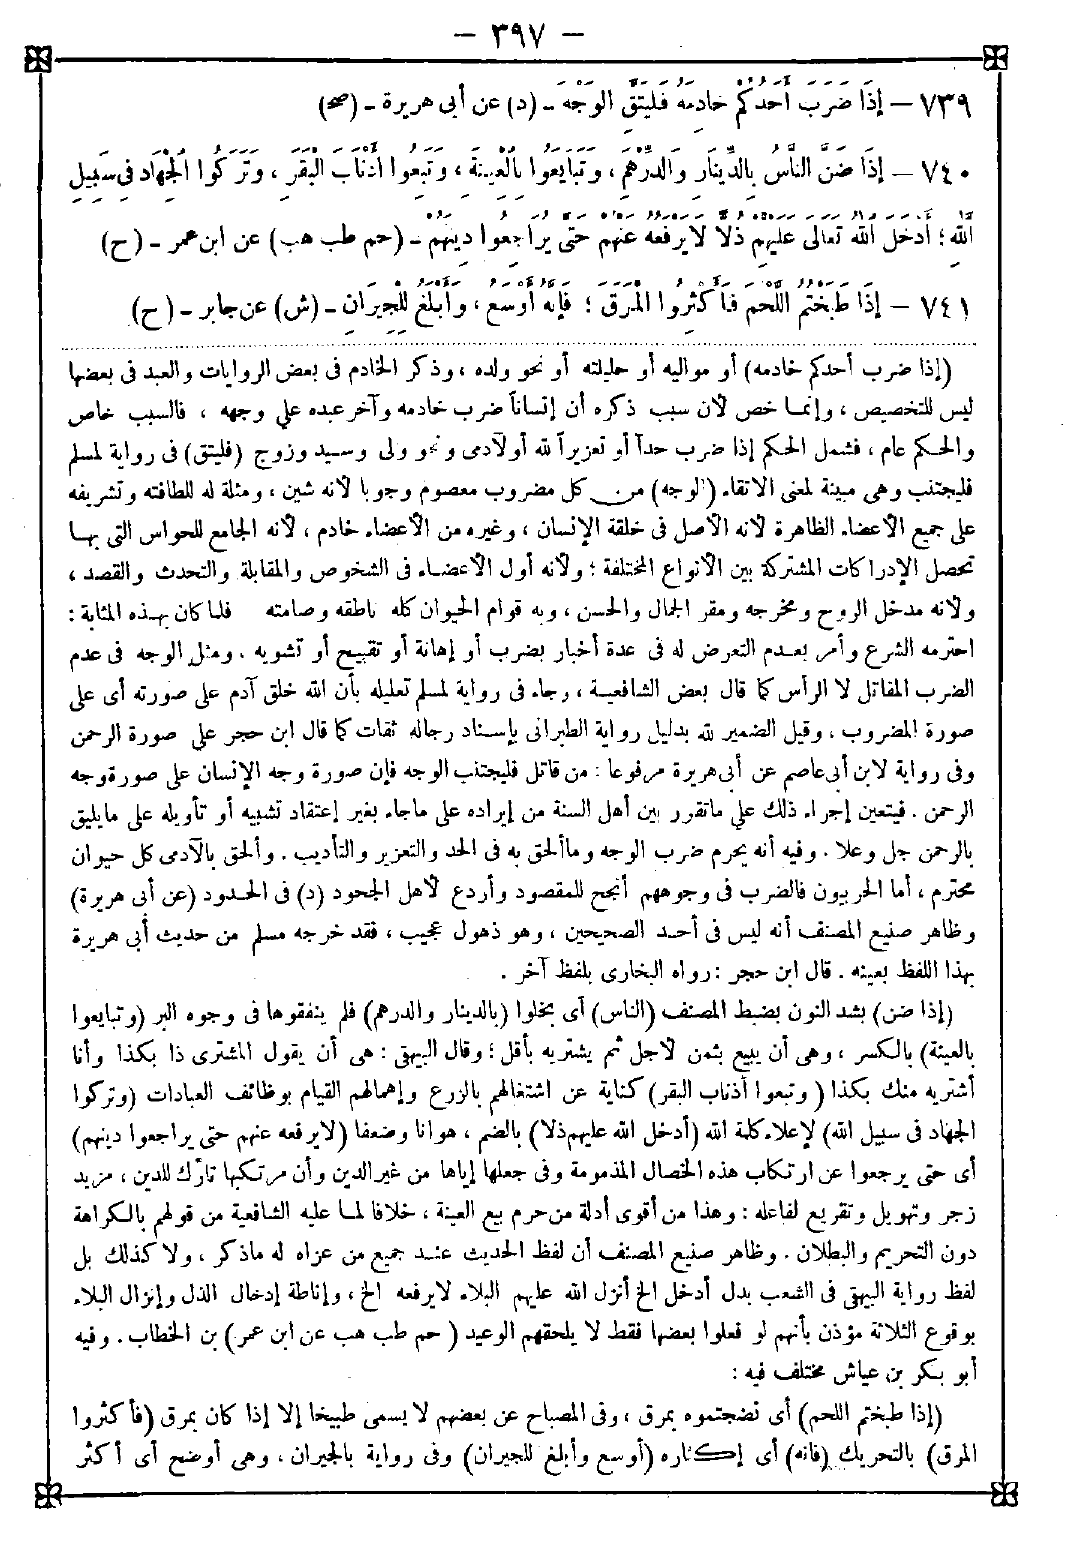 — ٣٩٧ —
٧٣٩ — إِذَا ضَرَبَ أَحَدُكُمْ خَادِمَهُ فَلْيَتَّقِ الْوَجْهَ - (د) عن أبى هريرة - (صح)
٧٤٠ — إِذَا ضَنَّ النَّاسُ بِالدِّينَارِ وَالدِّرْهَمِ ، وَتَبَايَعُوا بِالْعِينَةِ ، وَتَبِعُوا أَذْنَابَ الْبَقَرِ ، وَتَرَكُوا الْجِهَادَ فِى سَبِيلِ
اللهِ ؛ أَدْخَلَ اللهُ تَعَالَى عَلَيْهِمْ ذُلًّا لَا يَرْفَعُهُ عَنْهُمْ حَتَّى يُرَاجِعُوا دِينَهُمْ - (حم طب هب) عن ابن عمر - (ح)
٧٤١ — إِذَا طَبَخْتُمُ اللَّحْمَ فَأَكْثِرُوا الْمَرَقَ ؛ فَإِنَّهُ أَوْسَعُ ، وَأَبْلَغُ لِلْجِيرَانِ - (ش) عن جابر - (ح)
(إذا ضرب أحدكم خادمه) أو مواليه أو حليلته أو نحو ولده ، وذكر الخادم فى بعض الروايات والعبد فى بعضها
ليس للتخصيص ، وإنما خص لأن سبب ذكره أن إنساناً ضرب خادمه وآخر عبده على وجهه ، فالسبب خاص
والحكم عام ، فشمل الحكم إذا ضرب حداً أو تعزيراً لله أو لآدمى ونحو ولى وسيد وزوج (فليتق) فى رواية لمسلم
فليجتنب وهى مبينة لمعنى الاتقاء (الوجه) من كل مضروب معصوم وجوبا لأنه شين ، ومثلة له للطافته وتشريفه
على جميع الأعضاء الظاهرة لأنه الأصل فى خلقة الإنسان ، وغيره من الأعضاء خادم ، لأنه الجامع للحواس التى بها
تحصل الإدراكات المشتركة بين الأنواع المختلفة ؛ ولأنه أول الأعضاء فى الشخوص والمقابلة والتحدث والقصد ،
ولأنه مدخل الروح ومخرجه ومقر الجمال والحسن ، وبه قوام الحيوان كله ناطقه وصامته فلما كان بهذه المثابة :
احترمه الشرع وأمر بعدم التعرض له فى عدة أخبار بضرب أو إهانة أو تقبيح أو تشويه . ومثل الوجه فى عدم
الضرب المقاتل لا الرأس كما قال بعض الشافعية ، وجاء فى رواية لمسلم تعليله بأن الله خلق آدم على صورته أى على
صورة المضروب ، وقيل الضمير لله بدليل رواية الطبرانى بإسناد رجاله ثقات كما قال ابن حجر على صورة الرحمن
وفى رواية لابن أبى عاصم عن أبى هريرة مرفوعا : من قاتل فليجتنب الوجه فإن صورة وجه الإنسان على صورة وجه
الرحمن . فيتعين إجراء ذلك على ما تقرر بين أهل السنة من إيراده على ماجاء بغير إعتقاد تشبيه أو تأويله على ما يليق
بالرحمن جل وعلا . وفيه أنه يحرم ضرب الوجه وما ألحق به فى الحد والتعزير والتأديب . وألحق بالآدمى كل حيوان
محترم ، أما الحربيون فالضرب فى وجوههم أنجح للمقصود وأردع لأهل الجحود (د) فى الحدود (عن أبى هريرة)
وظاهر صنيع المصنف أنه ليس فى أحد الصحيحين ، وهو ذهول عجيب ، فقد خرجه مسلم من حديث أبى هريرة
بهذا اللفظ بعينه . قال ابن حجر : رواه البخارى بلفظ آخر .
(إذا ضن) بشد النون بضبط المصنف (الناس) أى بخلوا (بالدينار والدرهم) فلم ينفقوها فى وجوه البر (وتبايعوا
بالعينة) بالكسر ، وهى أن يبيع بثمن لأجل ثم يشتريه بأقل ؛ وقال البيهقى : هى أن يقول المشترى ذا بكذا وأنا
أشتريه منك بكذا (وتبعوا أذناب البقر) كناية عن اشتغالهم بالزرع وإهمالهم القيام بوظائف العبادات (وتركوا
الجهاد فى سبيل الله) لإعلاء كلمة الله (أدخل الله عليهم ذلا) بالضم ، هوانا وضعفا (لا يرفعه عنهم حتى يراجعوا دينهم)
أى حتى يرجعوا عن ارتكاب هذه الخصال المذمومة وفى جعلها إياها من غير الدين وأن مرتكبها تارك للدين ، مزيد
زجر وتهويل وتقريع لفاعله : وهذا من أقوى أدلة من حرم بيع العينة ، خلافا لما عليه الشافعية من قولهم بالكراهة
دون التحريم والبطلان . وظاهر صنيع المصنف أن لفظ الحديث عند جميع من عزاه له ماذكر ، ولا كذلك بل
لفظ رواية البيهقى فى الشعب بدل أدخل الخ أنزل الله عليهم البلاء لا يرفعه الخ ، وإناطة إدخال الذل وإنزال البلاء
بوقوع الثلاثة مؤذن بأنهم لو فعلوا بعضها فقط لا يلحقهم الوعيد (حم طب هب عن ابن عمر) بن الخطاب . وفيه
أبو بكر بن عياش مختلف فيه :
(إذا طبختم اللحم) أى نضجتموه بمرق ، وفى المصباح عن بعضهم لا يسمى طبيخا إلا إذا كان بمرق (فأكثروا
المرق) بالتحريك (فانه) أى إكثاره (أوسع وأبلغ للجيران) وفى رواية بالجيران ، وهى أوضح أى أكثر